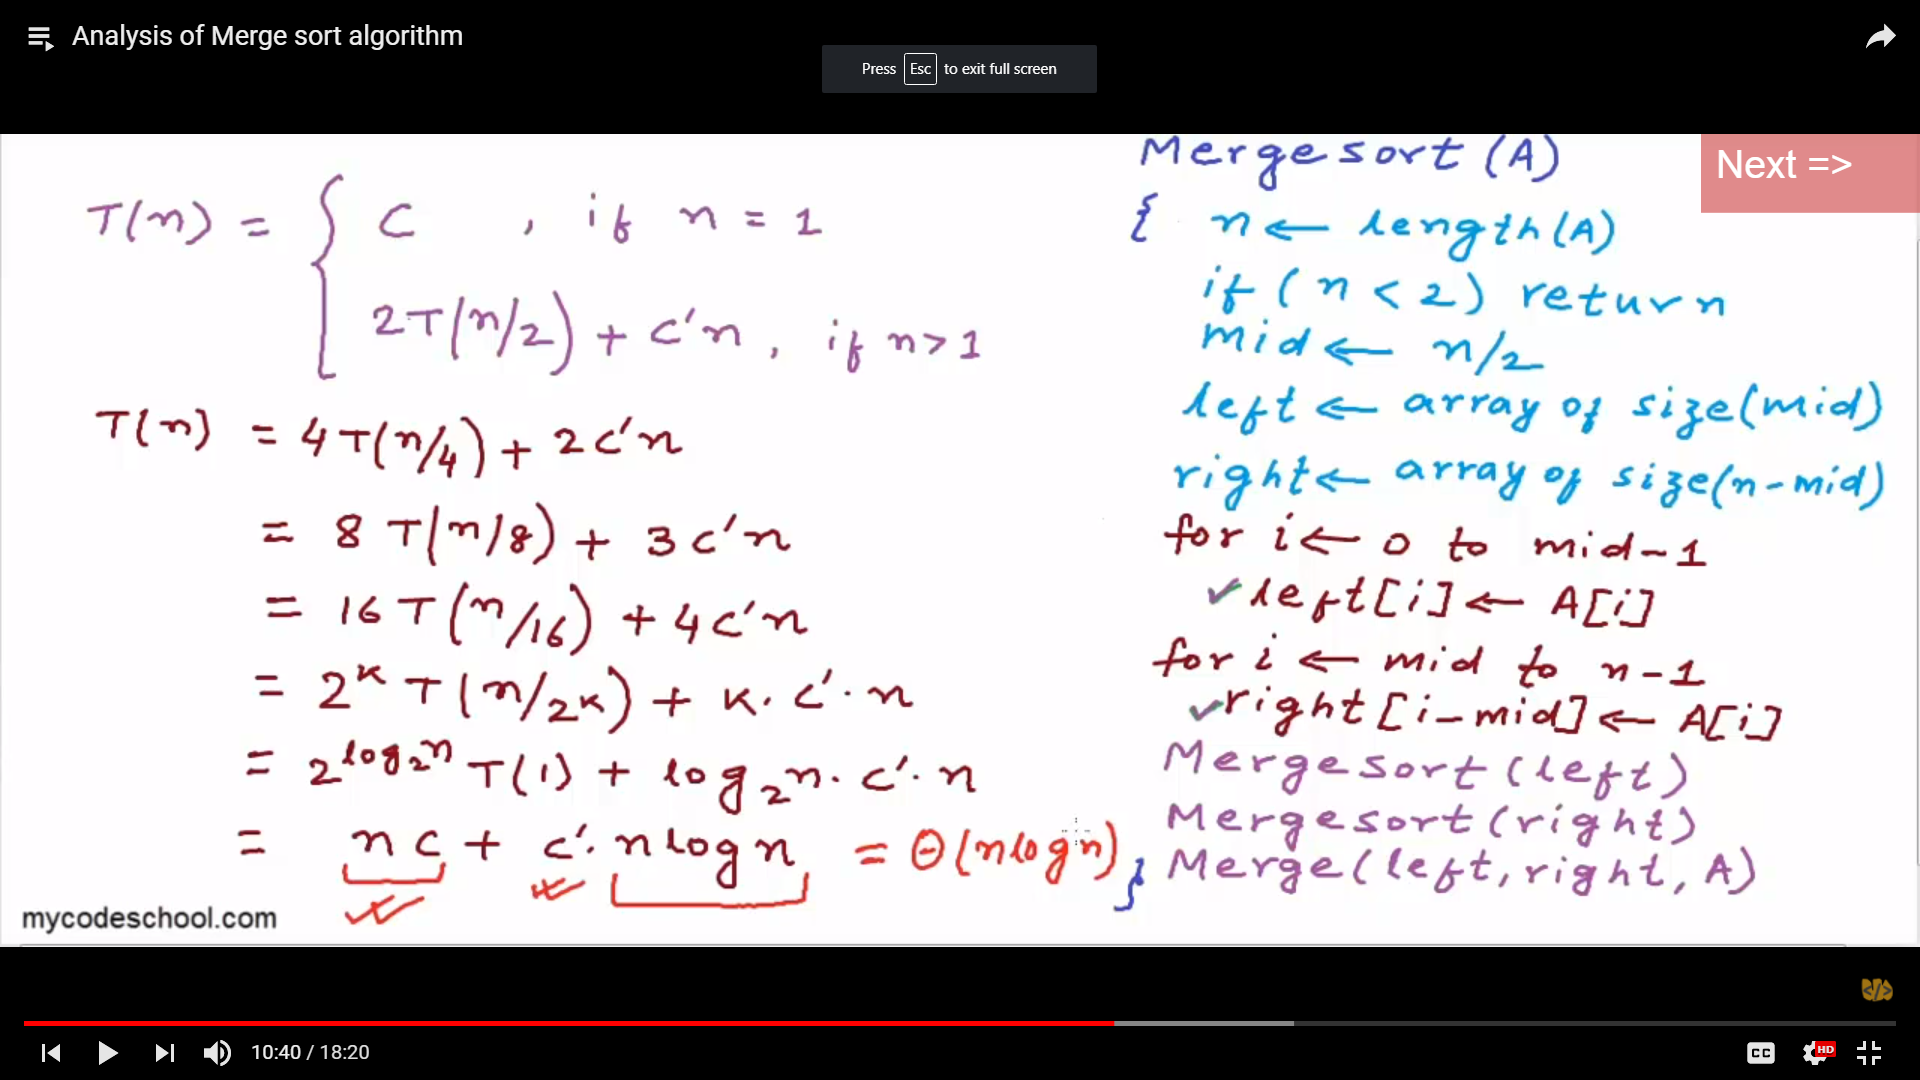 Analysis of Merge sort algorithm
Press Esc to exit full screen
Next =>
T(n) = { C , if n = 1
2T(n/2) + C'n , if n > 1
T(n) = 4T(n/4) + 2C'n
= 8 T(n/8) + 3C'n
= 16 T(n/16) + 4C'n
= 2^K T(n/2^K) + K. C'. n
= 2^log₂n T(1) + log₂n. C'. n
= nC + C'. nlogn = Θ(nlogn)
mycodeschool.com
Mergesort(A)
{ n ← length(A)
if (n < 2) return
mid ← n/2
left ← array of size(mid)
right ← array of size(n-mid)
for i ← 0 to mid-1
left[i] ← A[i]
for i ← mid to n-1
right[i-mid] ← A[i]
Mergesort(left)
Mergesort(right)
Merge(left, right, A)
}
10:40 / 18:20
CC
HD